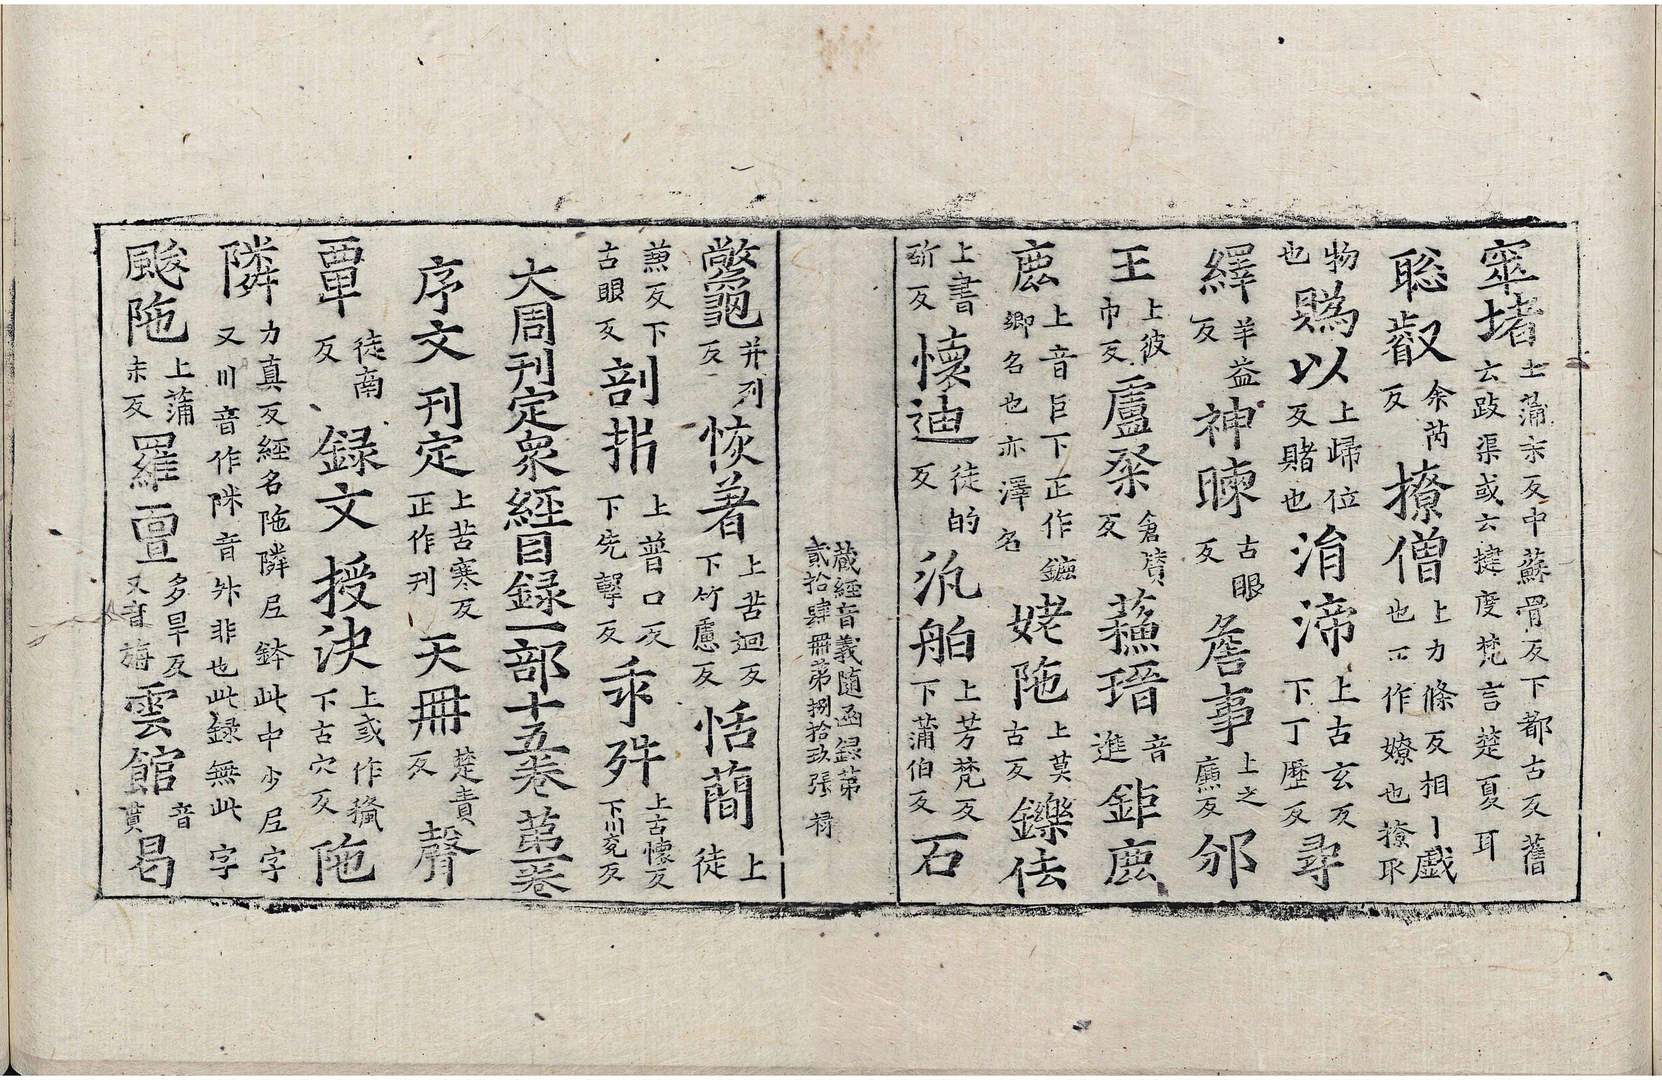 窣堵士蒲末反中蘇骨反下都古反舊云䟦渠或云揵度梵言楚夏耳
聡叡余芮反撩僧上力條反相丨戯也正作嫽也撩取
物也賜以上歸位反賭也㳙渧上古玄反下丁歷反尋
繹羊益反神暕古眼反詹事上之廉反邠
王上彼巾反盧粲倉賛反蘓瑨音進鉅鹿
鹿上音巨下正作鏕鄉名也亦澤名姥陁上莫古反鑠佉
上書斫反懷迪徒的反汎舶上芳梵反下蒲伯反石
蔵經音義随函録第
貳拾肆冊第捌拾玖張 䘵
鷩䶱并列反恢著上苦迴反下竹慮反恬蕳上徒
兼反下古眼反剖㭊上普口反下先擊反乖舛上古懷反下川兖反
大周刊定衆經目録一部十五卷第一卷
序文 刊定上苦寒反正作刊 天冊楚責反 聲
覃徒南反 録文 授決上或作䂊下古穴反 陁
隣力真反經名陁隣尼鉢此中少尼字又川音作㖠音舛非也此録無此字
颰陁上蒲末反羅亶多旱反又音旃雲館音貫曷